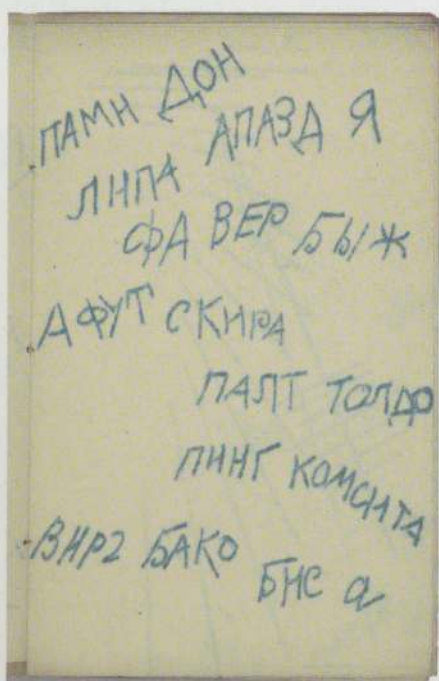 ПАМН ДОН
ЛНПА АПАЗД Я
ФА ВЕР БЫЖ
АФУТ СКНРА
ПАЛТ ТОЛДО
ПИНГ
БАКО
БНС а